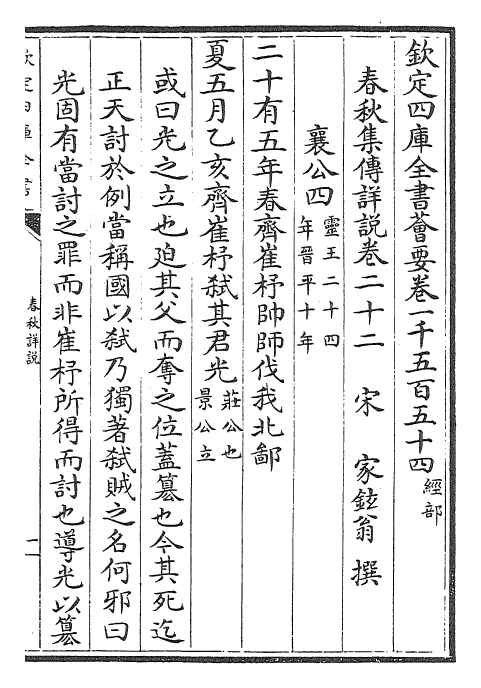 欽定四庫全書薈要卷一千五百五十四經部
春秋集傳詳說卷二十二 宋 家鉉翁 撰
襄公四靈王二十四年晉平十年
二十有五年春齊崔杼帥師伐我北鄙
夏五月乙亥齊崔杼弑其君光莊公也景公立
或曰光之立也廹其父而奪之位蓋簒也今其死迄
正天討於例當稱國以弑乃獨著弑賊之名何邪曰
光固有當討之罪而非崔杼所得而討也導光以簒
欽定四庫全書
春秋詳說
一